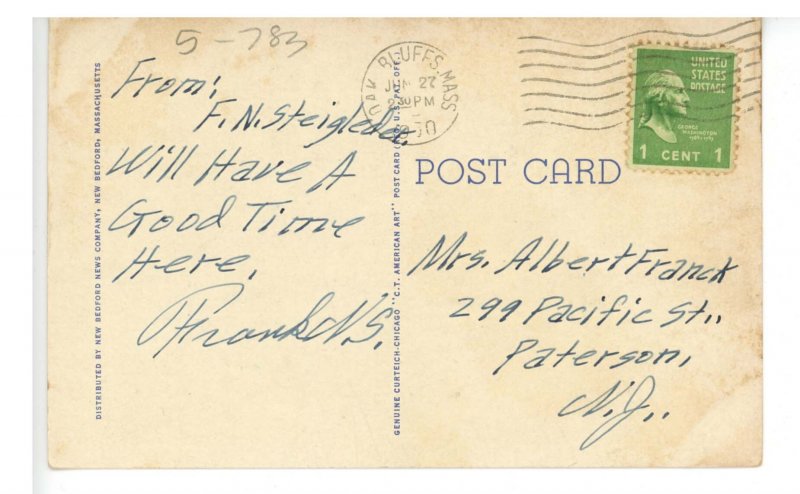 5-783
From:
F. N. Steigleder
Will Have A
Good Time
Here.
Frank N. S.
DISTRIBUTED BY NEW BEDFORD NEWS COMPANY, NEW BEDFORD, MASSACHUSETTS
GENUINE CURTEICH-CHICAGO "C.T. AMERICAN ART" POST CARD (REG. U.S. PAT. OFF.)
OAK BLUFFS, MASS
JUN 27
230 PM
UNITED
STATES
POSTAGE
GEORGE
WASHINGTON
1 CENT 1
POST CARD
Mrs. Albert Franck
299 Pacific St.,
Paterson,
N.J..